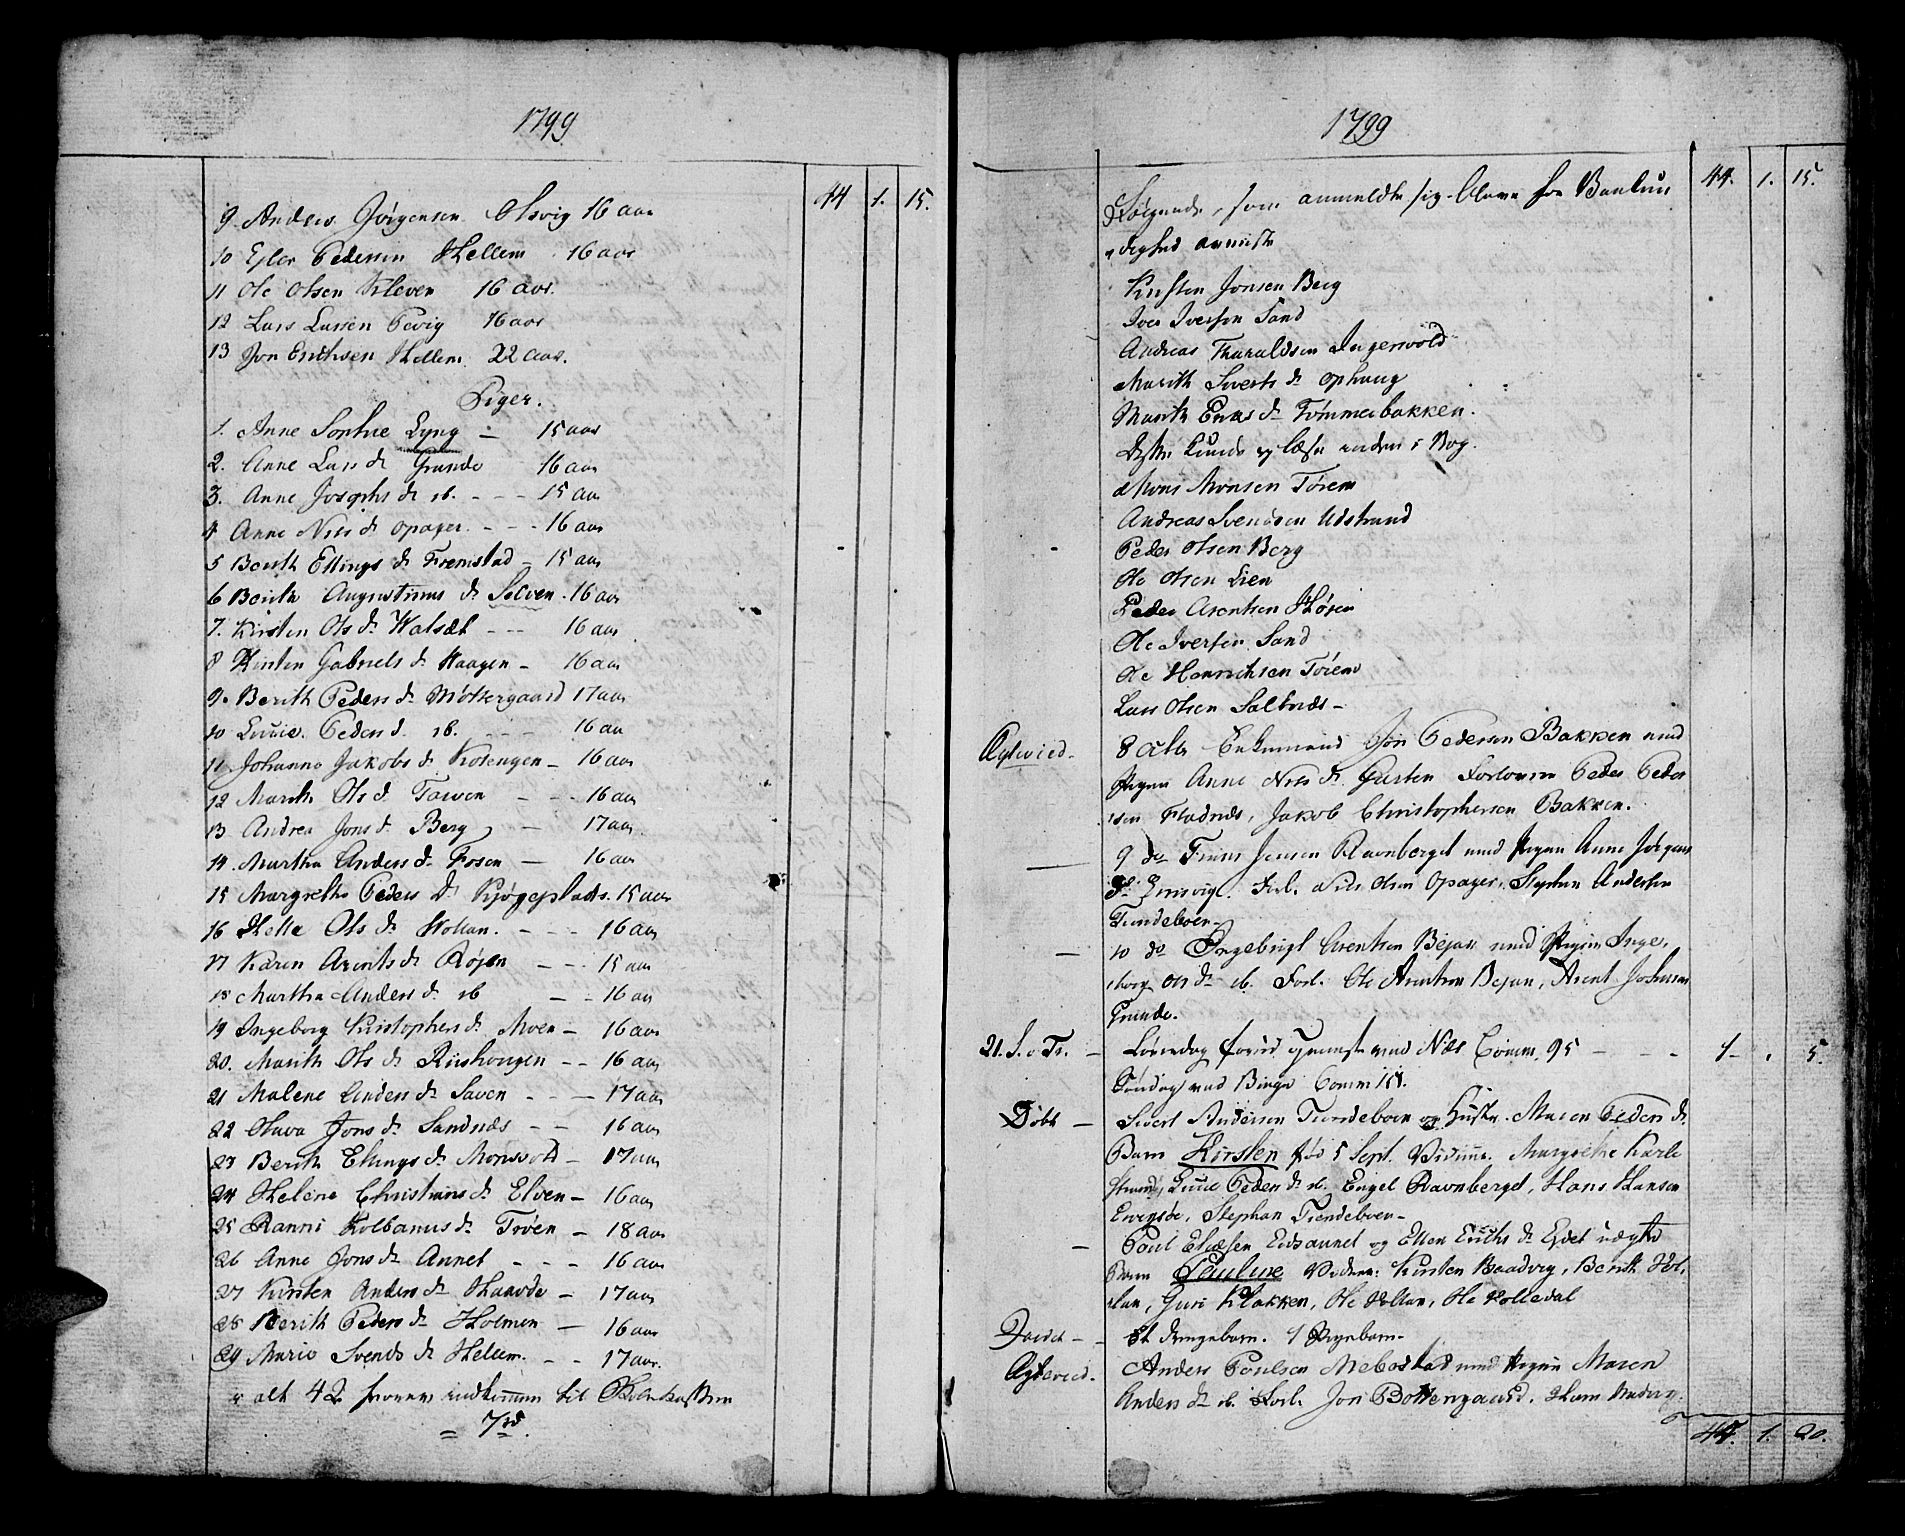 1799
44 1. 15.
9 Anders Jørgensen Olsvig 16 aar
10 Eyler Pedersen Hellem 16 aar
11 Ole Olsen Kleven 16 aar.
12 Lars Larsen Pevig 16 aar
13 Jon Erichsen Hellem 22 aar.
Piger.
1. Anne Sophie Lyng - 15 aar
2. Anne Lars d. Grande 16 aar
3. Anne Josephs d. ib. - - - 15 aar
4 Anne Nils d. Opager. - - - 16 aar
5 Berith Ellings d. Fremstad - 15 aar
6 Berith Augustinus d. Selven. 16 aar
7. Kirsten Ols d. Watsæt - - - 16 aar
8 Kirsten Gabriels d. Haagen - 16 aar
9. Berith Peders d. Møllergaard 17 aar
10 Lucie Peders d. ib. - - - 16 aar
11 Johanna Jakobs d. Kotengen - 16 aar
12 Marith Ols d. Tarven - - - 16 aar
13 Andrea Jons d. Berg - 17 aar.
14. Martha Anders d. Fosen - 16 aar
15 Margrethe Peders d. Kjøgeplads. 15 aar
16 Helle Ols d. Hollan. - - - 16 aar
17 Karen Arents d. Røjen - - - 15 aar
18 Martha Anders d. ib - - 16 aar
19 Ingeborg Kristophers d. Moen - 16 aar
20. Marith Ols d. Riishougen - - 16 aar
21 Malene Anders d. Saven - - - 17 aar
22 Olava Jons d. Sandnæs - - 16 aar
23 Berith Ellings d. Monsvold - 17 aar
24 Helene Christians d. Elven - 16 aar
25 Ranni Kolbanus d. Tøven - 18 aar
26 Anne Jons d. Annet - - - 16 aar
27 Kirsten Anders d. Haarde - 17 aar
28 Berith Peders d. Holmen - 16 aar
29 Marie Svends d. Hellem. - - 17 aar.
alt 42 til
1799
44. 1. 15.
Følgende, som anmeldte sig bleve for Vankun
dighed
Kirsten Jonsen Berg
Iver Iversen Sand
Andreas Tharaldsen Ingervold
Marith Siverts d. Ophaug
Marith Eriks d. Tømmerbakken.
Disse kunde ej læse inden i Bog.
Mons Monsen Tørem
Andreas Svendsen Udstrand
Peder Olsen Berg
Ole Olsen Lien
Peder Arentsen Hørsen
Ole Iversen Sand
Ole Henrichsen Tørem
Lars Olsen Saltnæs -
Ægtevied. 8 octb Enkemand Jon Pedersen Bakken med
Pigen Anne Nils d. Garten Forlovere Peder Peder
sen Fladnæs, Jakob Christophersen Bakken.
— 9 do Jensen Ravnberget med Pigen Anne Jørgens
d. . Forl. Nils Olsen Opager, Stephen Andersen
Tiendeboen -
— 10 do Ingebrigt Arentsen Bejan med Pigen Inge,
borg Ols d. ib. Forl. Ole Arentsen Bejan, Arent Johnsen
Grande.
21. S. e Tr. — Løverdag med Næs Comm. 95 - - - 1 - . 5.
Søndag ved Comm 151.
Døbt — Sivert Andersen Tiendeboen og Hustr. Maren Peders d.
Barn Kirsten fød 5 Sept. Margrethe Karl
strand, Lucie Peders d. ib. Engel Ravnberget, Hans Hansen
Stephan Tiendeboen -
— Poul Eliæsen Eidsannet og Ellen Erichs d. Eidet uægte
Barn Pauline Kirsten Baadvig, Berith Hol,
lan, Guri Klakken, Ole Hollan, Ole Holledal
— Et drengebarn. 1 Pigebarn -
Ægtevied. Anders Poulsen Mebostad med Pigen Maren
Anders d. ib. Forl. Jon Bottengaard,
44. 1. 20.